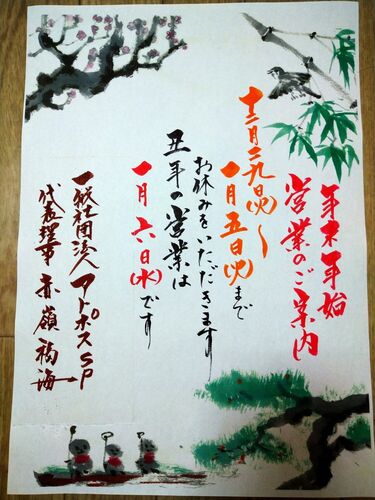 年末年始
営業のご案内
十二月二九日(火)〜
一月五日(火)まで
お休みをいただきます
丑年の営業は
一月六日(水)です
一般社団法人アトポスSP
代表理事赤嶺福海